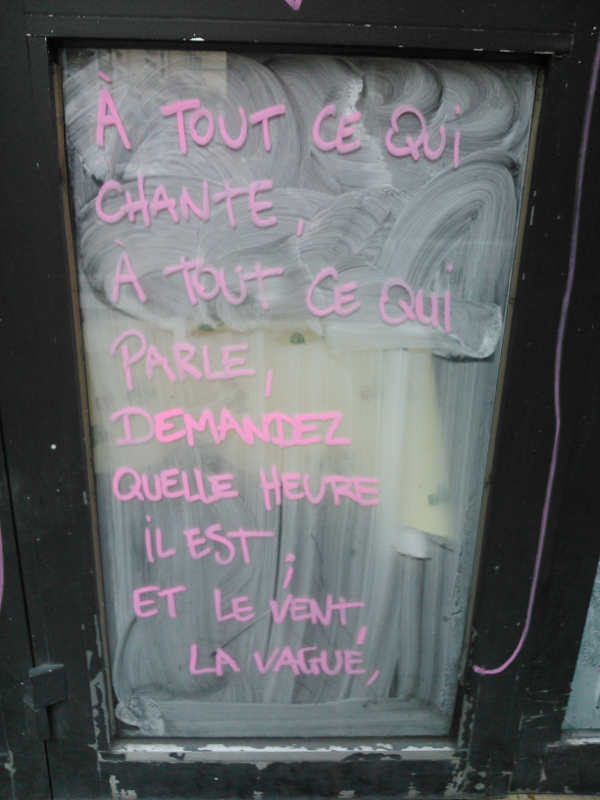 À TOUT CE QUi
CHANTE,
À TOUT CE QUi
PARLE,
DEMANDEZ
QUELLE HEURE
iL EST ;
ET LE VENT,
LA VAGUE,